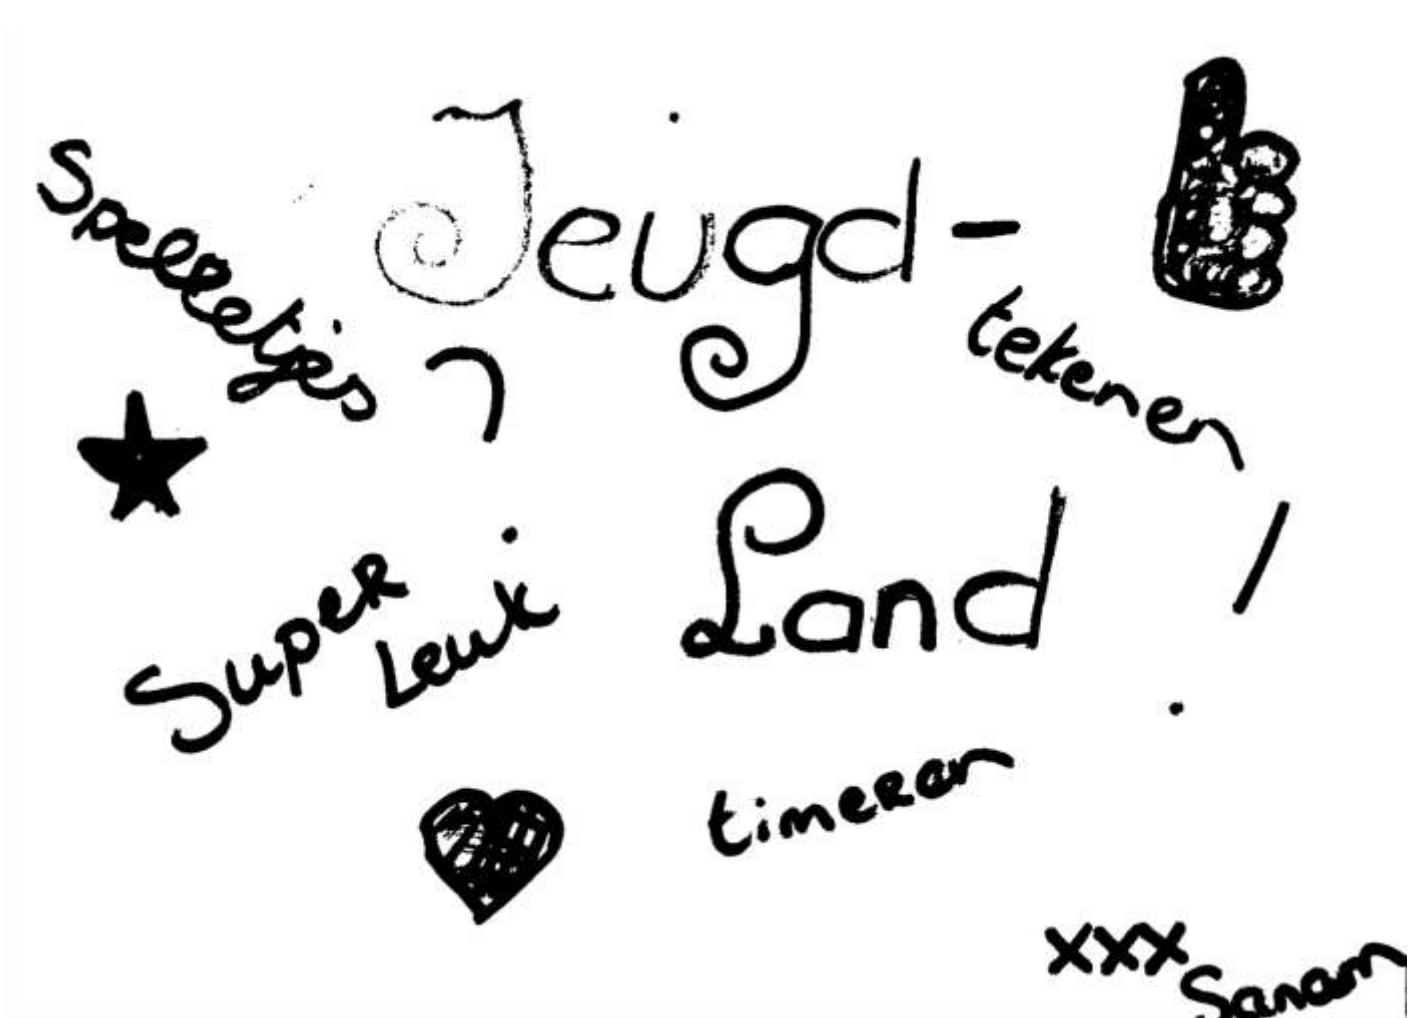 Spelletjes
Jeugd-
tekenen
Land
Super
Leuk
timeren
xxx
Sanam